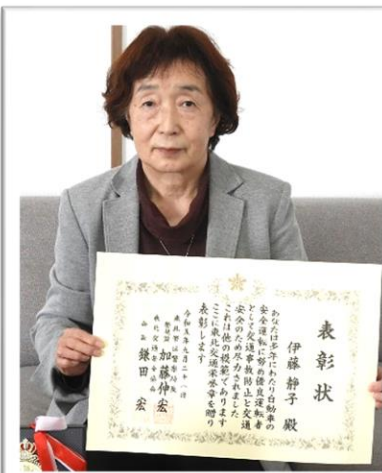 表彰状
伊藤 静子 殿
あなたは多年にわたり自動車の
安全運転に努め優良運転者
として交通事故防止と交通
安全のため尽力されました
これは他の模範であります
ここに東北交通栄誉章を贈り
表彰します
令和五年九月二十八日
東北管区警察局長
加藤 伸宏
会長 鎌田 宏